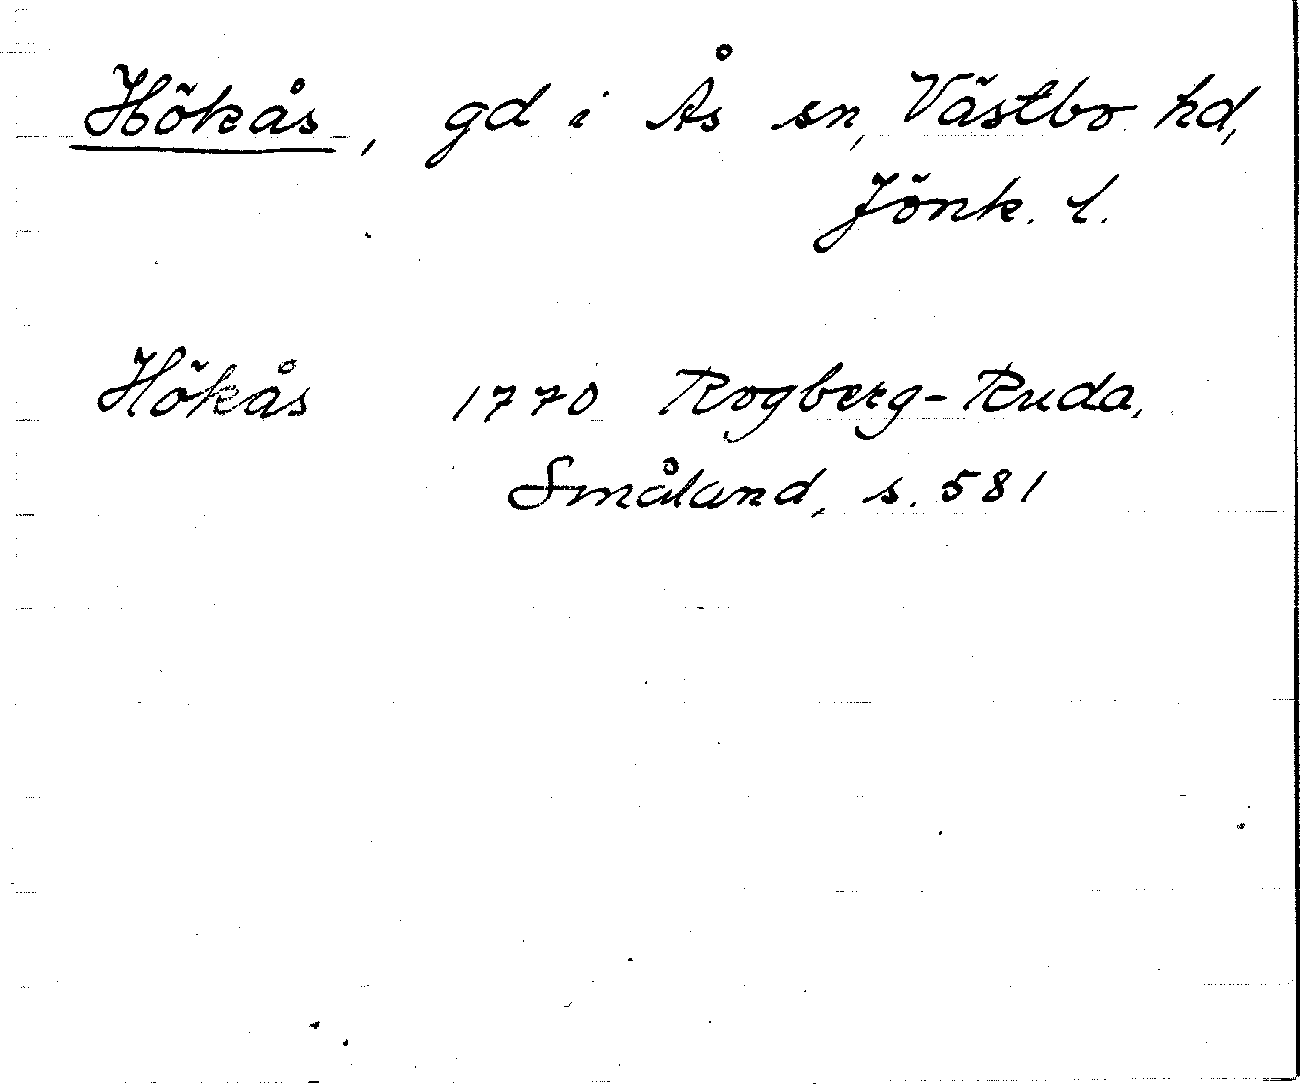 Hökås, gd i Ås sn, Västbo hd,
Jönk. l.
Hökås 1770 Rogberg-Ruda,
Småland, s. 581